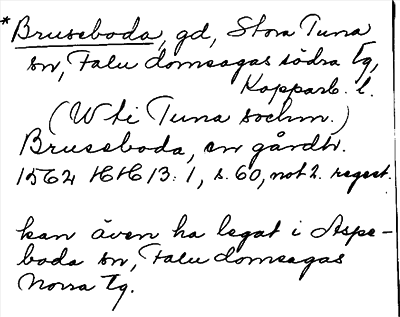 *Bruseboda, gd, Stora Tuna
sn, Falu domsagas södra tg,
Kopparb. l.
(W ti Tuna sochm.)
Brusseboda, en gårdtr.
1562 HH 13:1, s. 60, not 2. regest.
kan även ha legat i Aspe-
boda sn, Falu domsagas
Norra tg.